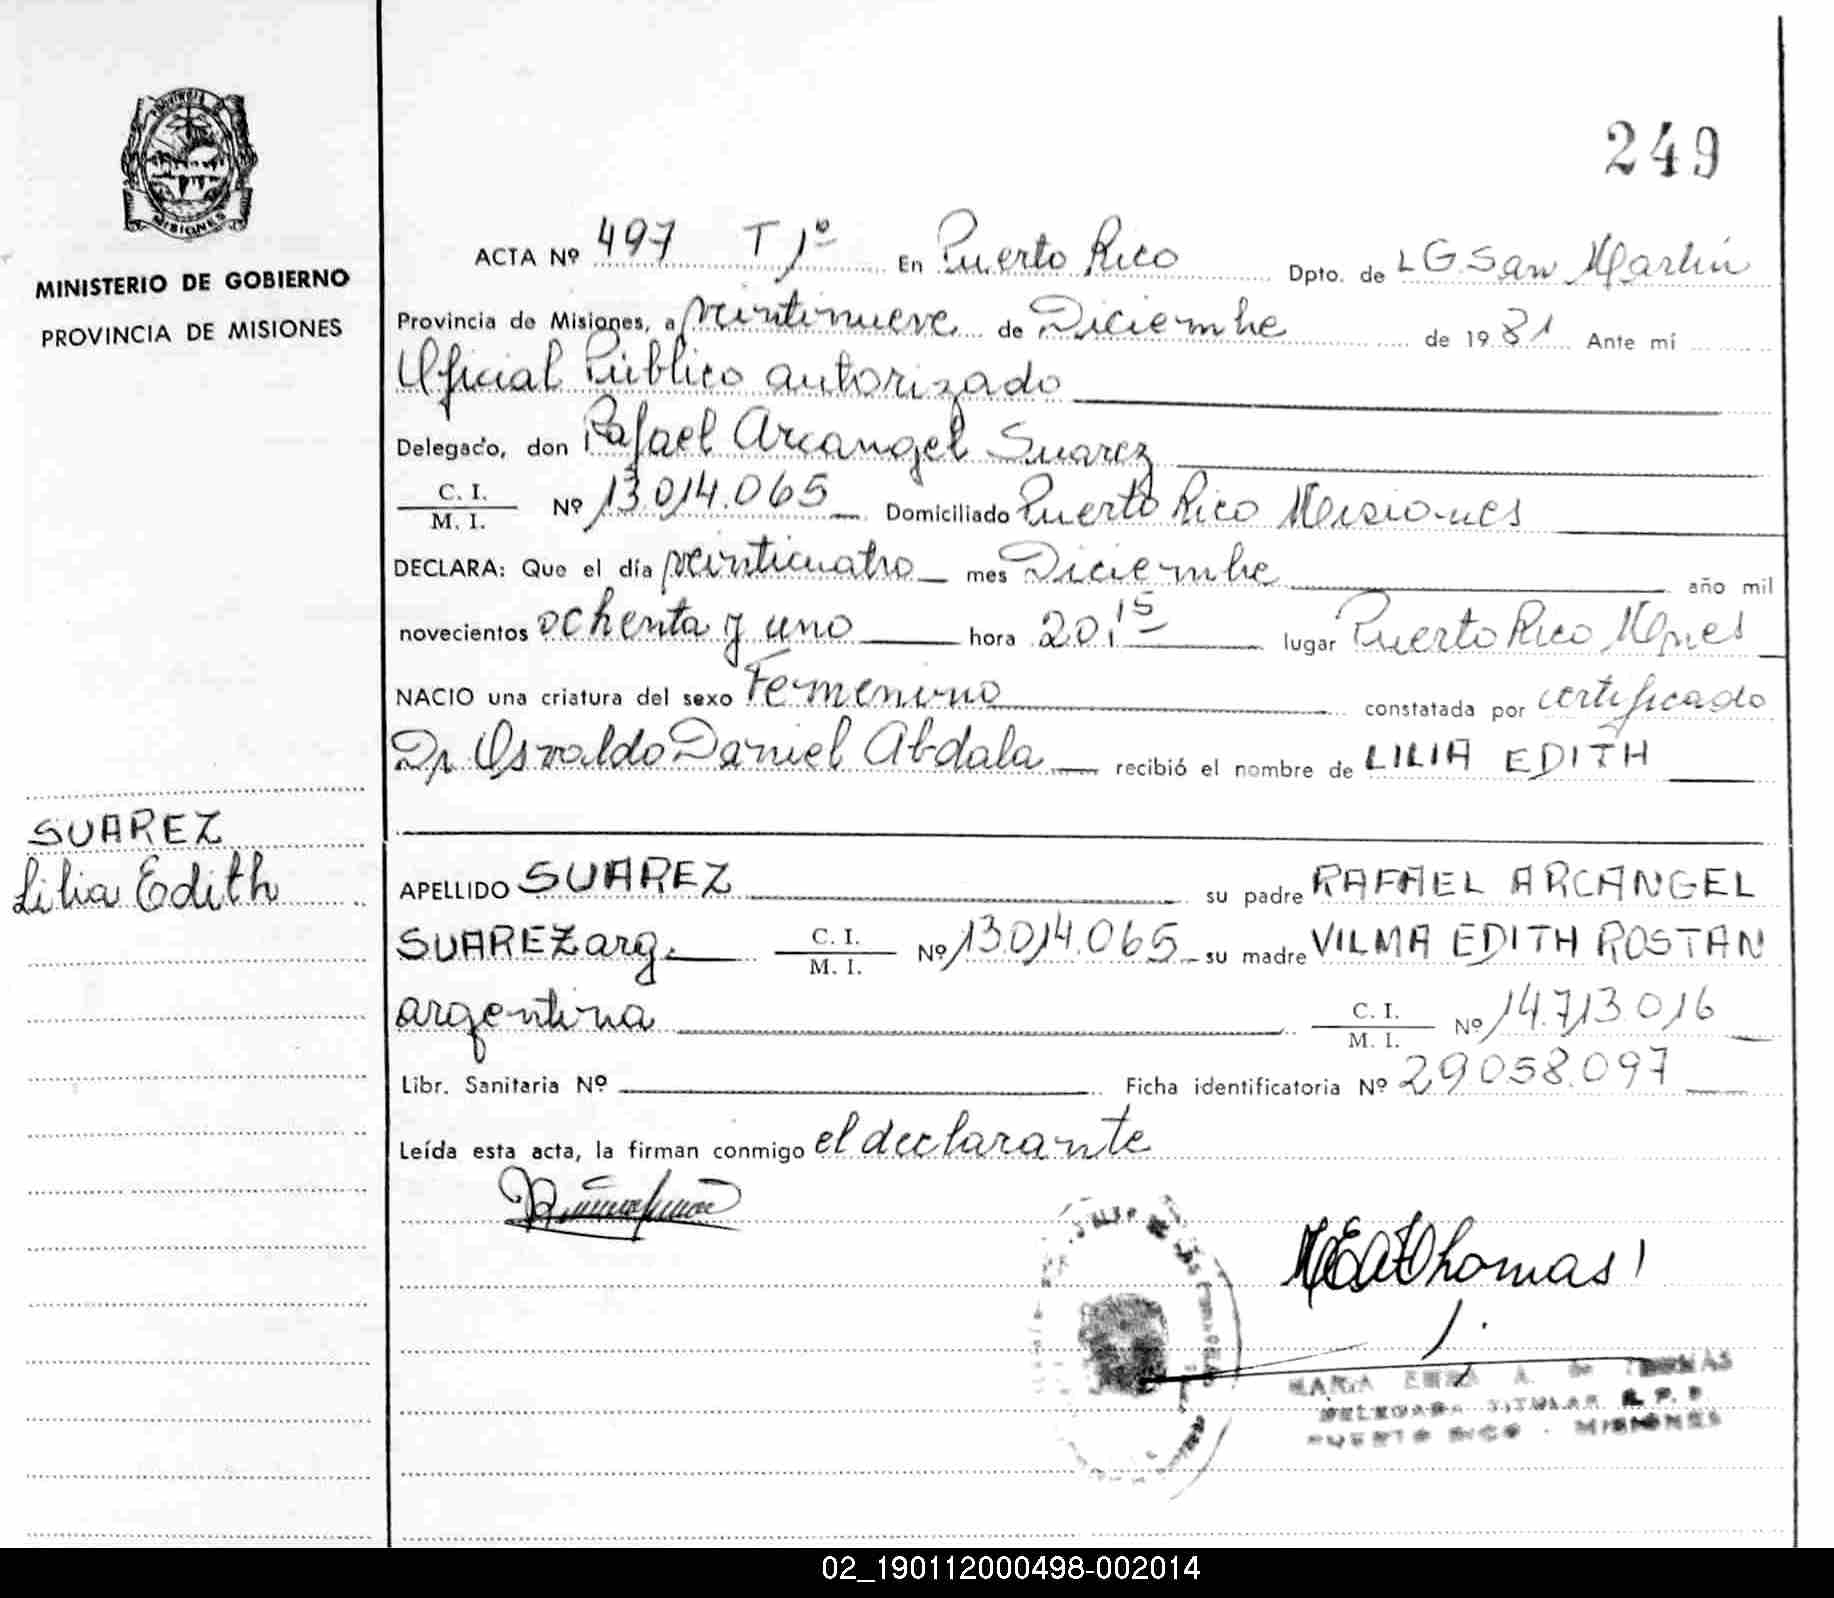 249
PROVINCIA DE
MISIONES
MINISTERIO DE GOBIERNO
PROVINCIA DE MISIONES
ACTA Nº 497 T 1º En Puerto Rico Dpto. de LG. San Martín
Provincia de Misiones, a veintinueve de Diciembre de 1981 Ante mí
Oficial Público autorizado
Delegado, don Rafael Arcangel Suarez
C. I.
M. I. Nº 13.014.065 Domiciliado Puerto Rico Misiones
DECLARA: Que el día veinticuatro mes Diciembre año mil
novecientos ochenta y uno hora 20,15 lugar Puerto Rico Mnes
NACIO una criatura del sexo Femenino constatada por certificado
Dr Osvaldo Daniel Abdala recibió el nombre de LILIA EDITH
SUAREZ
Lilia Edith
APELLIDO SUAREZ su padre RAFAEL ARCANGEL
SUAREZ arg. C. I.
M. I. Nº 13.014.065 su madre VILMA EDITH ROSTAN
argentina C. I.
M. I. Nº 14.713.016
Libr. Sanitaria Nº Ficha identificatoria Nº 29058.097
Leída esta acta, la firman conmigo el declarante
Thomas
MARIA A. de THOMAS
DELEGADA TITULAR R. P. P.
PUERTO RICO - MISIONES
02_190112000498-002014